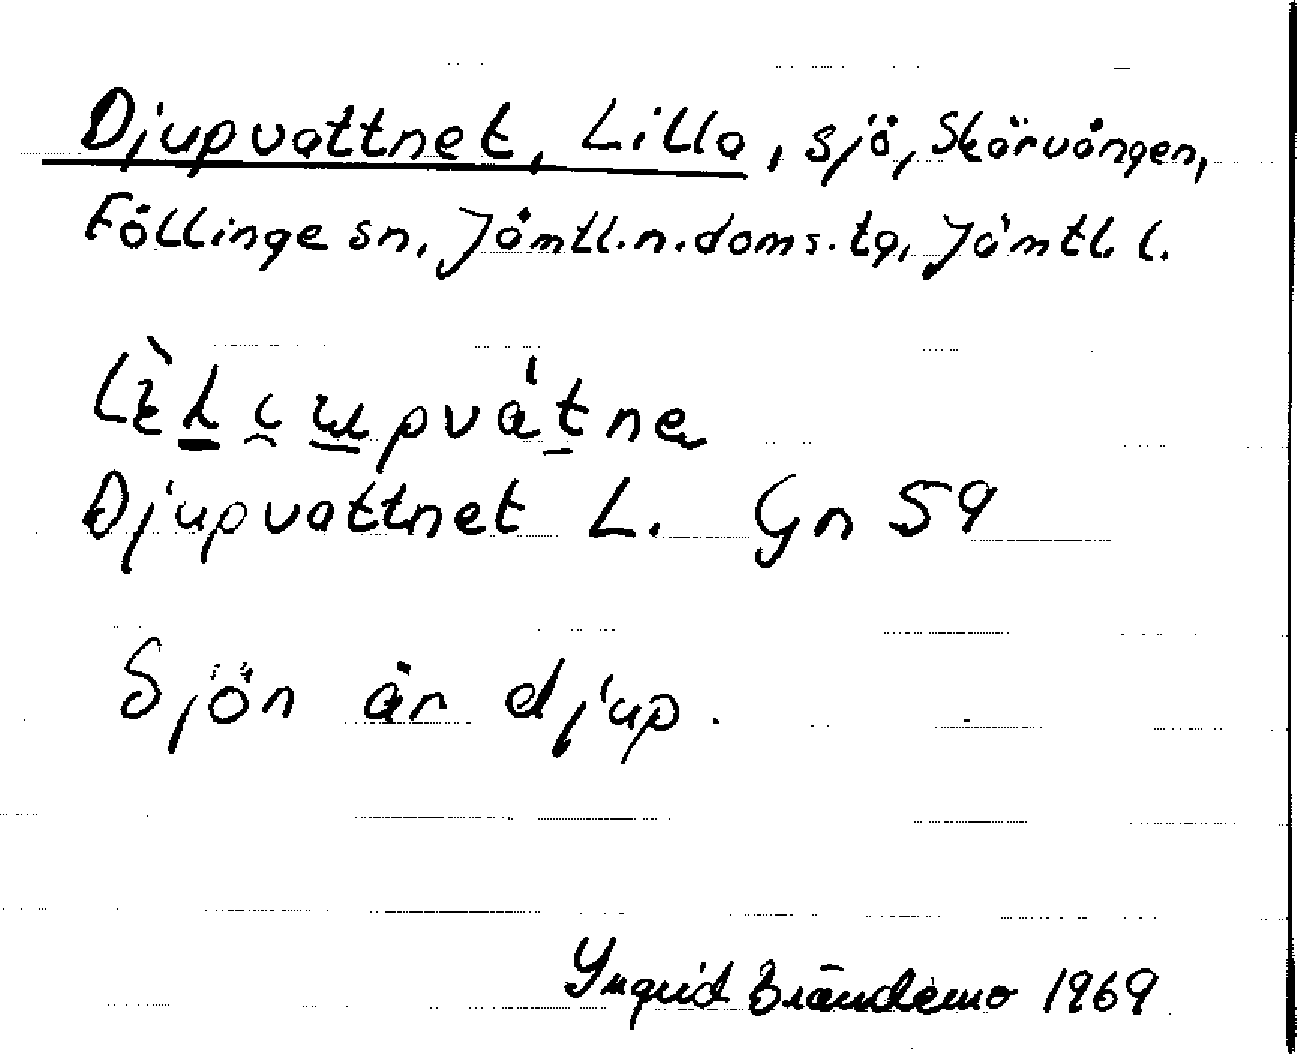 Djupvattnet, Lilla, sjö, Skärvången,
Föllinge sn, Jämtl.n.doms.tg, Jämtl. l.
Djupvattnet L. Gn 59
Sjön är djup.
Yngrid Brändemo 1969